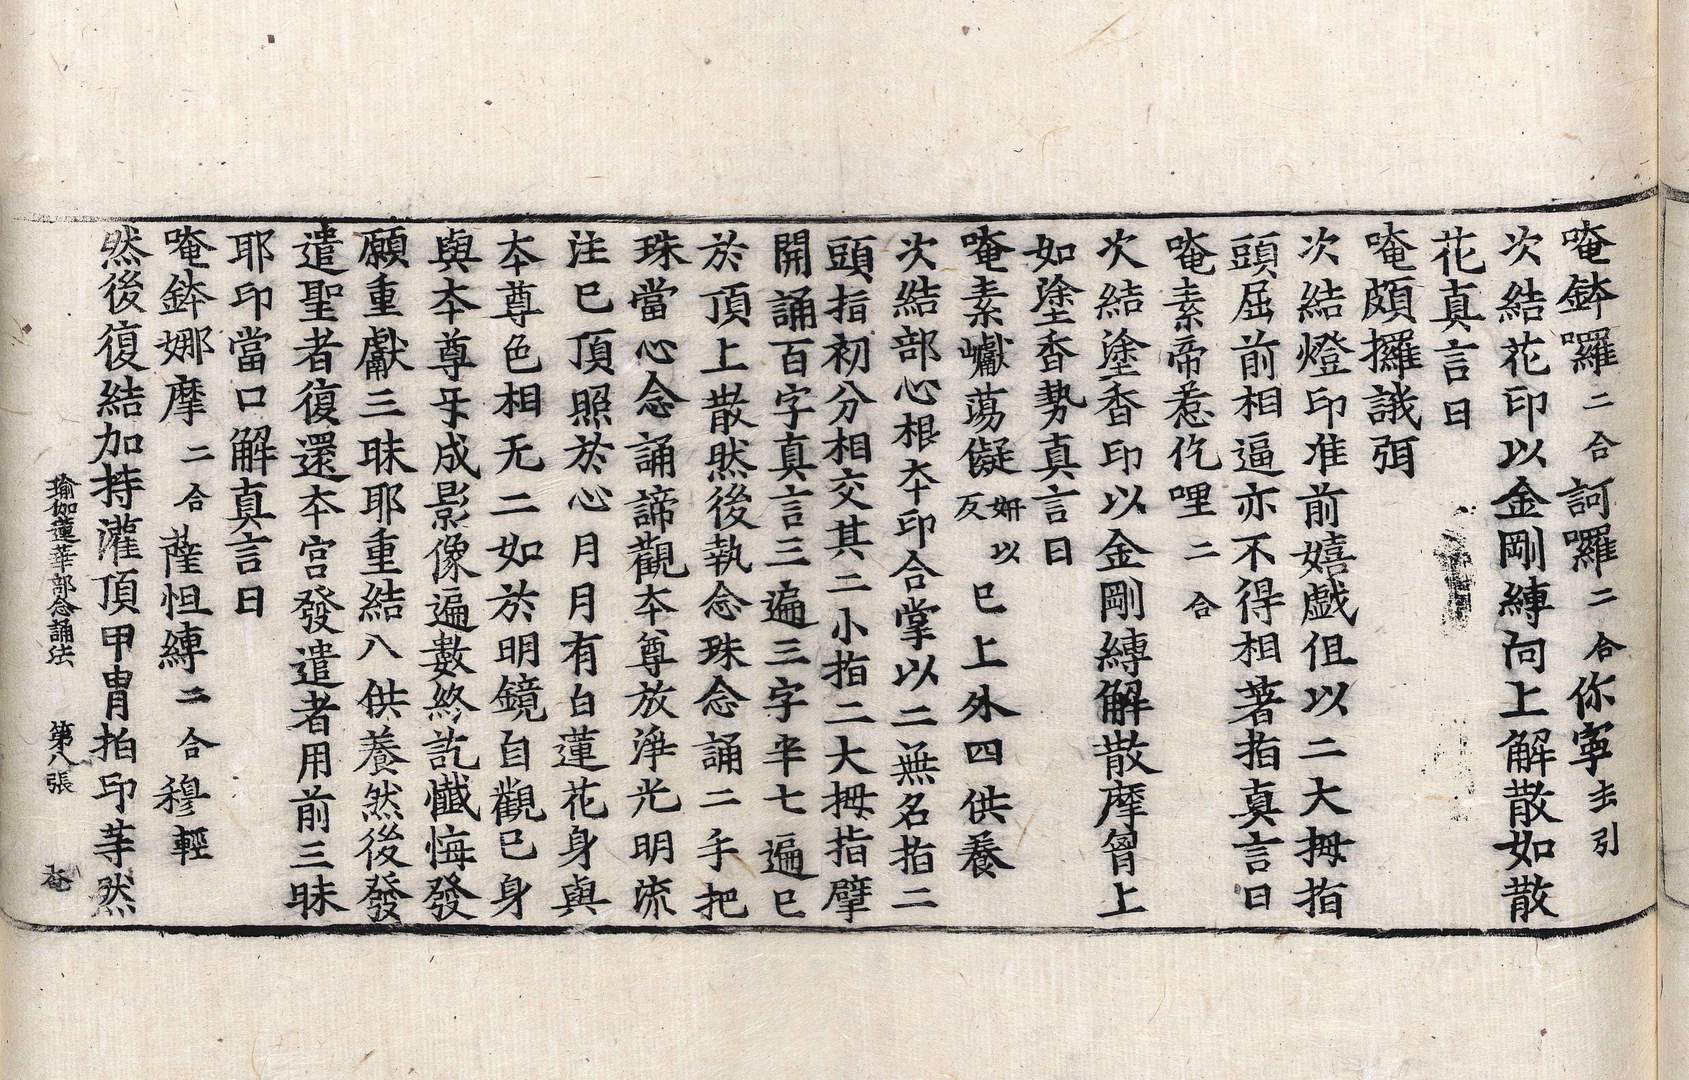 唵鉢囉二合訶囉二合你寧去引
次結花印以金剛縛向上解散如散
花真言曰
唵頗攞誐弭
次結燈印准前嬉戲但以二大拇指
頭屈前相逼亦不得相著指真言曰
唵素帝惹仡哩二合
次結塗香印以金剛縛解散摩胷上
如塗香勢真言曰
唵素巘蕩儗妍以反已上外四供養
次結部心根本印合掌以二無名指二
頭指初分相交其二小指二大拇指擘
開誦百字真言三遍三字半七遍已
於頂上散然後執念珠念誦二手把
珠當心念誦諦觀本尊放淨光明流
注已頂照於心月月有白蓮花身與
本尊色相无二如於明鏡自觀已身
與本尊㸦成影像遍數終訖懺悔發
願重獻三昧耶重結八供養然後發
遣聖者復還本宮發遣者用前三昧
耶印當口解真言曰
唵鉢娜摩二合薩怛縛二合穆輕
然後復結加持灌頂甲胄拍印等然
瑜伽蓮華部念誦法　第八張　菴